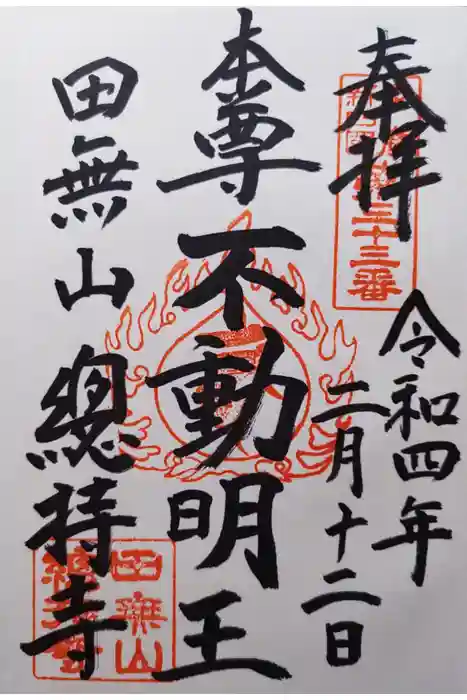 奉拝
令和四年
二月十二日
本尊
不動明王
田無山
總持寺
三十三番
田無山